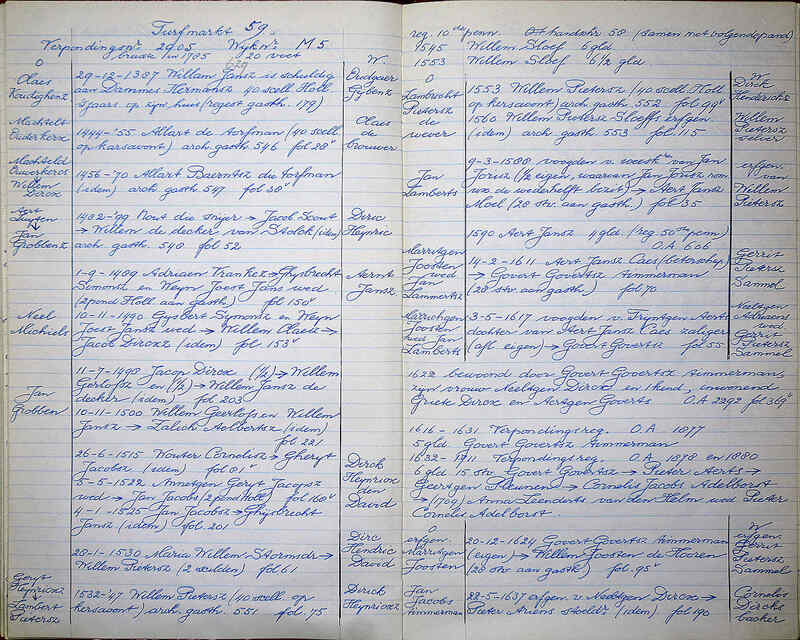 Turfmarkt 59.
Verpondingsnr. 2905 Wijknr. M 5
breede in 1785 20 voet
O
W.
Claes
29-12-1387 Willem Jansz is schuldig
Oudzier
aan Dammes Hermansz 40 scell. Holl
Gybenz
's jaars op zijn huis (regest gasth. 179)
Machtelt
Claes
Ouderkerx
1444-'55 Allart de torfman (40 scell.
de
op karsavont) arch. gasth. 546 fol 28v
brouwer
Machteld
Ouwerkercs
1456-70 Allart Baerntsz die torfman
Willem
(idem) arch. gasth. 547 fol 38v
Dircx
Aert
1482-'99 Nout die snijer → Jacob Scout
Diric
Jan
→ Willem de decker van Stolck (idem)
Heynric
Grobbenz
arch. gasth. 548 fol 52
1-9-1489 Adriaen Vranksz → Ghysbrecht
Aernt
Symonsz en Weyn Joest Jans wed
Jansz
(2 pond Holl aan gasth) fol 150v
Neel
10-11-1490 Gysbert Symonsz en Weyn
Michiels
Joest Jansz wed → Willem Claesz →
Jacob Dircxz (idem) fol 153v
11-7-1498 Jacop Dircx (½) → Willem
Gerlofsz en (½) → Willem Jansz de
Jan
decker (idem) fol 203
Grobben
10-11-1500 Willem Geerlofs en Willem
Jansz → Zalich Aelbertsz (idem)
fol 221
26-6-1515 Wouter Cornelisz → Gheryt
Jacobsz (idem) fol 81v
Dirck
5-5-1522 Annetgen Geryt Jacopsz
Heynricx
wed → Jan Jacobs (2 pond holl) fol 160v
den
4-1-1525 Jan Jacobsz → Ghysbrecht
David
Jansz (idem) fol 201
Dirc
28-1-1530 Maria Willem Stormsdr →
Hendric
Willem Pietersz (2 gulden) fol 61
David
Geryt
Heynricxz
1532-'47 Willem Pietersz (40 scell. op
Dirick
Lambert
kersavont) arch. gasth. 551 fol. 75
Heynricxz
Pietersz
reg. 10de penn. Othandschr 58 (samen met volgende pand)
1545 Willem Sloef 6 gld.
1553 Willem Sloef 6½ gld.
O
W
Lambrecht
1553 Willem Pietersz (40 scell. Holl
Dirck
Pietersz
op kersavont) arch. gasth. 552 fol 94v
Henderickx
de
1560 Willem Pietersz Sloeffs erfgen
Willem
wever
(idem) arch gasth 553 fol 115
Pietersz
9-3-1588 voogden v. weesk. van Jan
erfgen.
Jan
Jorisz (½ eigen, waarvan Jan Jorisz vom
van
Lamberts
vx de wederhelft bezit) → Aert Jansz
Willem
Mool (28 stv. aan gasth.) fol 35
Pietersz
1590 Aert Jansz 4 gld. (reg. 50ste penn)
O.A 606
Marritgen
14-2-1611 Aert Jansz Caes (beterschap)
Gerrit
Joosten
→ Govert Govertsz Timmerman
Pietersz
wed
(28 stv. aan gasth.) fol 70
Sammel
Jan
Lammertsz
Marrichgen
3-5-1617 voogden v. Tryntgen Aerts
Neeltgen
Joosten
dochter van Aert Jansz Caes zaliger
Adriaens
wed Jan
(afl. eigen) → Govert Govertsz fol 55
wed
Lamberts
Gerrit
Pietersz
Sammel
1622 bewoond door Govert Govertsz Timmerman,
zijn vrouw Neeltgen Dircx en 1 kind, inwonend
Griete Dircx en Aertgen Goverts O.A 2292 fol 369v
1616-1631 Verpondingsreg. O.A 1877
5 gld. Govert Govertsz Timmerman
1632-1711 Verpondingsreg. O.A 1878 en 1880
6 gld 15 stv. Govert Govertsz → Pieter Aerts →
Geertgen Theunen → Cornelis Jacobs Adelborst
→ (1709) Anna Leenderts van den Helm wed Pieter
Cornelis Adelborst.
O
W
erfgen.
20-12-1624 Govert Govertsz Timmerman
erfgen.
Marritgen
(eigen) → Willem Joosten de Hooren
Gerrit
Joosten
(28 stv aan gasth.) fol. 95v
Pietersz
Sammel
Jan
22-5-1637 erfgen. v Neeltgen Dircx →
Cornelis
Jacobs
Pieter Ariens stoeldr (idem) fol 190
Dircks
Timmerman
backer